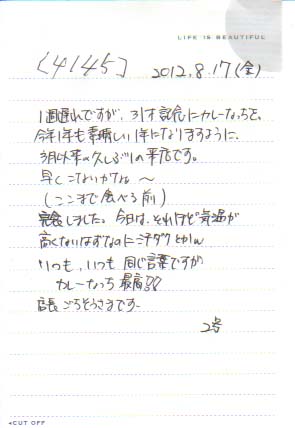 LIFE IS BEAUTIFUL
[4145] 2012.8.17(金)
1週遅れですが、31才記念にカレーなっちを。
今年1年も素晴しい1年になりますように、
3月以来の久しぶりの来店です。
早くこないかなぁ 〜
(ここまで食べる前)
完食しました。今日は、それほど気温が
高くないはずなのに汗ダクとかん
いつも、いつも同じ言葉ですが
カレーなっち最高!!
店長ごちそうさまです-
2号
◂CUT OFF